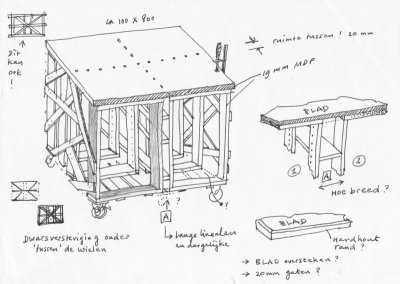 CA 100 X 800
Dit
kan
ook
!
ruimte tussen ! 20 mm
19 mm MDF
BLAD
1
2
A
Hoe breed ?
?
?
A
BLAD
Hardhout
rand ?
Dwarsversteviging onder
'tussen' de wielen
Lange linealen
en dergelijke
→ BLAD oversteken ?
→ 20mm gaten ?